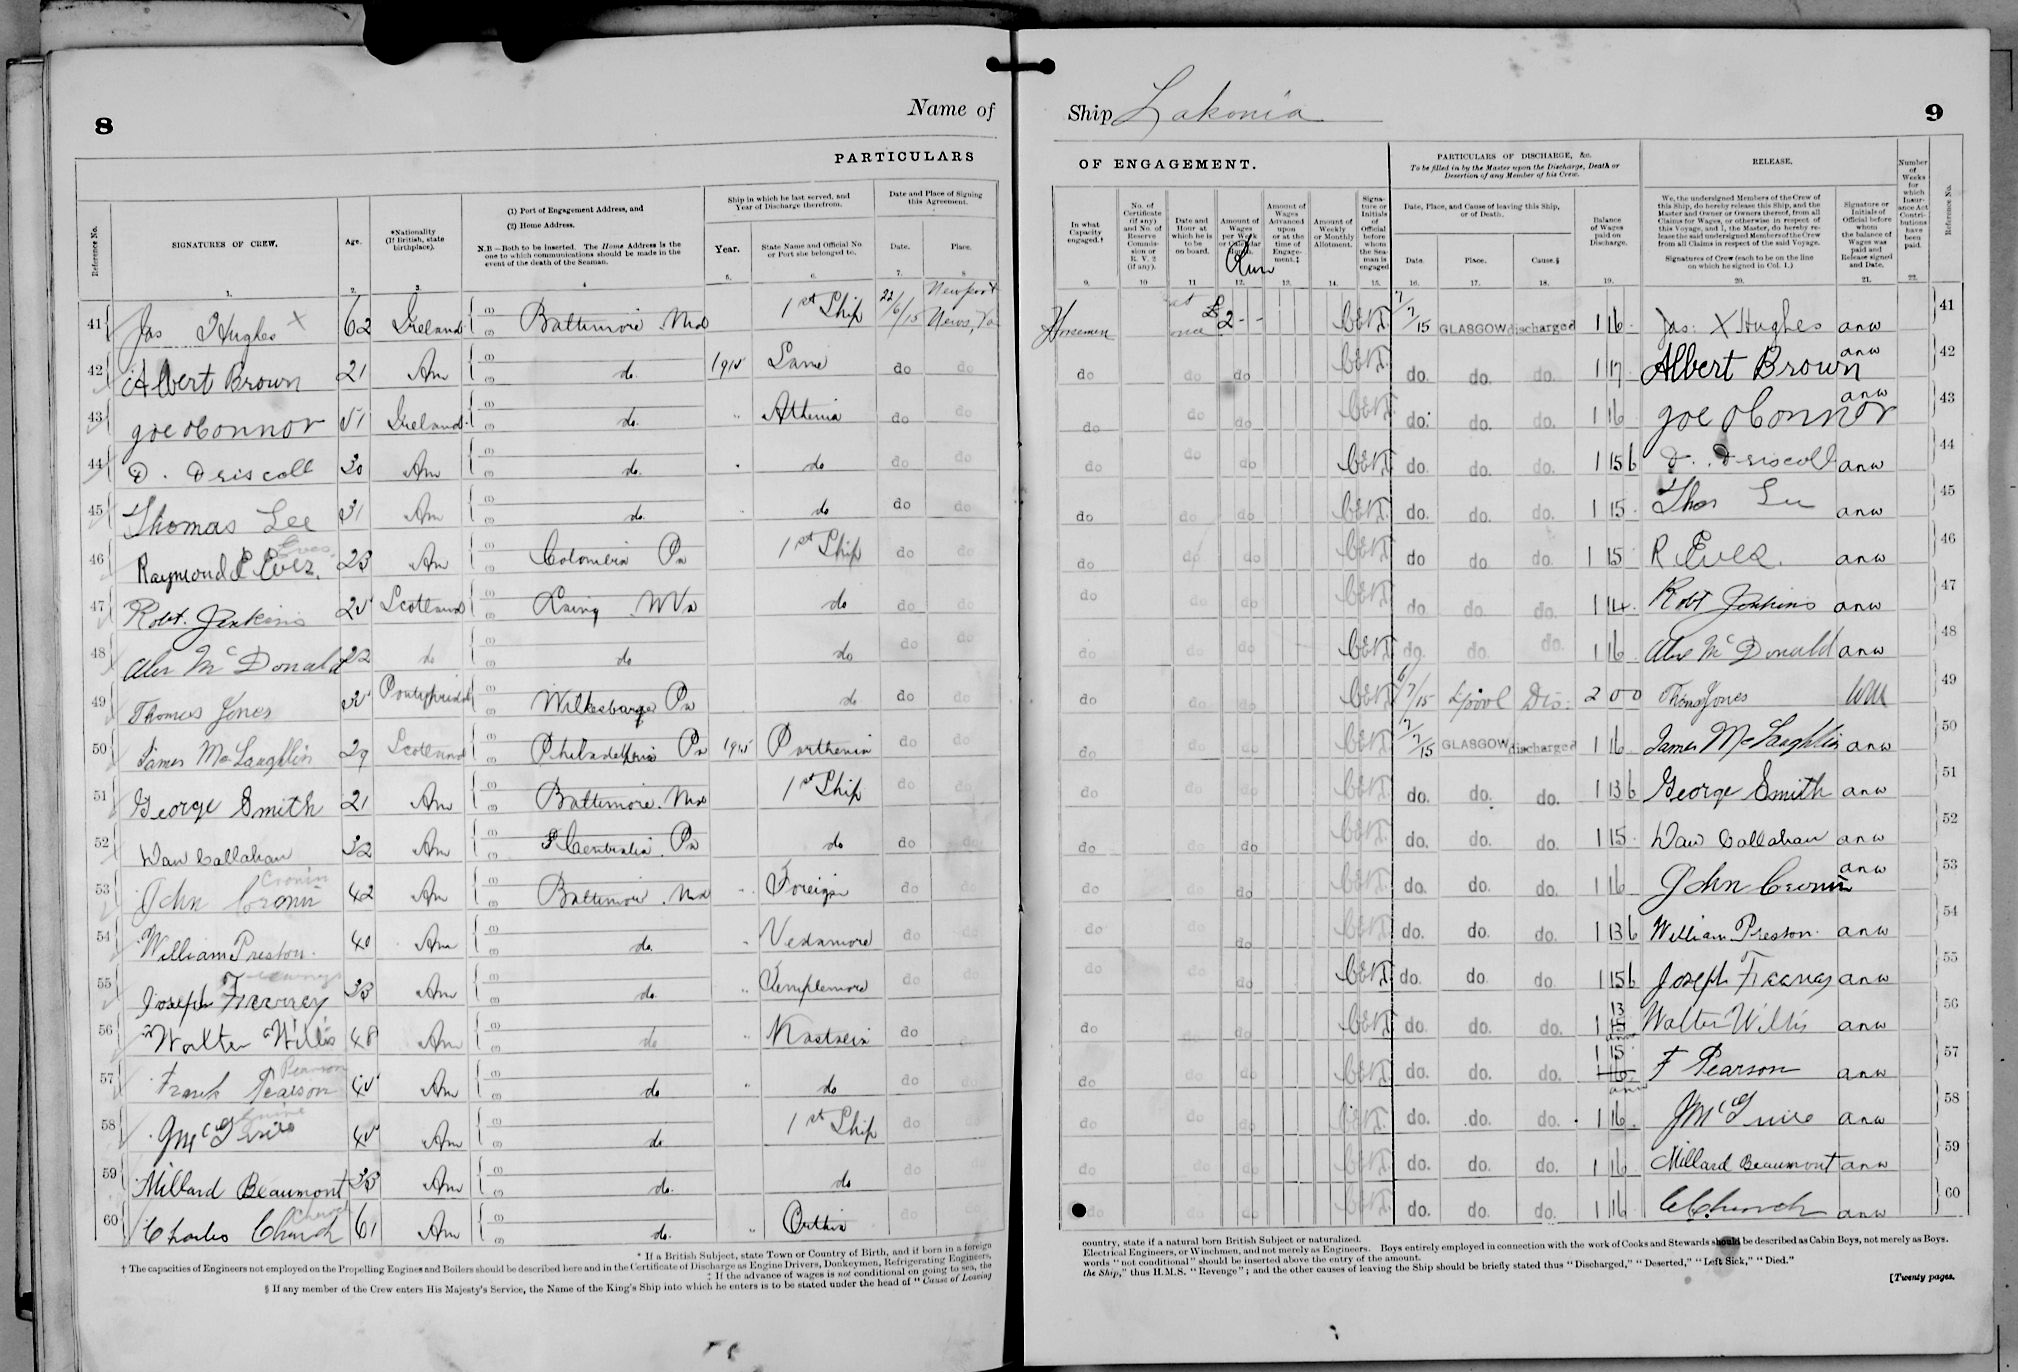 8
Name of
PARTICULARS
Reference No.
SIGNATURES OF CREW.
Age.
*Nationality
(If British, state
birthplace).
(1) Port of Engagement Address, and
(2) Home Address.
N.B.—Both to be inserted. The Home Address is the
one to which communications should be made in the
event of the death of the Seaman.
Ship in which he last served, and
Year of Discharge therefrom.
Year.
State Name and Official No
or Port she belonged to.
Date and Place of Signing
this Agreement.
Date.
Place.
1. 2. 3. 4 5. 6. 7. 8
41 Jas Hughes X 62 Ireland (1) (2) Baltimore Md 1st Ship 22/6/15 Newport News, Va
42 Albert Brown 21 Am (1) (2) do. 1915 Same do do
43 Joe OConnor 51 Ireland (1) (2) do. " Athenia do do
44 D. Driscoll 30 Am (1) (2) do. " do do do
45 Thomas Lee 31 Am (1) (2) do. " do do do
46 Raymond E Eves 23 Am (1) (2) Colombia Pa 1st Ship do do
47 Robt. Jenkins 25 Scotland (1) (2) Laing W Va do do do
48 Alex McDonald 22 do (1) (2) do do do do
49 Thomas Jones Pontypridd (1) (2) Wilkesbarre Pa do do do
50 James McLaughlin 29 Scotland (1) (2) Philadelphia Pa 1915 Parthenia do do
51 George Smith 21 Am (1) (2) Baltimore. Md 1st Ship do do
52 Dan Callahan 32 Am (1) (2) Centralia Pa do do do
53 John Cronin Cronin 42 Am (1) (2) Baltimore Md " Foreign do do
54 William Preston. 40 Am (1) (2) do. " Vedamore do do
55 Joseph Fearney 33 Am (1) (2) do. " Templemore do do
56 Walter Willis 48 Am (1) (2) do " do
57 Frank Pearson Pearson 45 Am (1) (2) do " do do do
58 J McGuire 45 Am (1) (2) do 1st Ship do do
59 Millard Beaumont 33 Am (1) (2) do. do do do
60 Charles Church Church 61 Am (1) (2) do. " Orthia do do
* If a British Subject, state Town or Country of Birth, and if born in a foreign
† The capacities of Engineers not employed on the Propelling Engines and Boilers should be described here and in the Certificate of Discharge as Engine Drivers, Donkeymen, Refrigerating Engineers,
‡ If the advance of wages is not conditional on going to sea, the
§ If any member of the Crew enters His Majesty's Service, the Name of the King's Ship into which he enters is to be stated under the head of "Cause of Leaving
Ship Lakonia
9
OF ENGAGEMENT.
PARTICULARS OF DISCHARGE, &c.
To be filled in by the Master upon the Discharge, Death or
Desertion of any Member of his Crew.
RELEASE.
In what
Capacity
engaged.†
No. of
Certificate
(if any)
and No. of
Reserve
Commis-
sion or
R. V. 2
(if any).
Date and
Hour at
which he is
to be
on board.
Amount of
Wages
per Week
or Calendar
Month.
Run
Amount of
Wages
Advanced
upon
or at the
time of
Engage-
ment.‡
Amount of
Weekly
or Monthly
Allotment.
Signa-
ture or
Initials
of
Official
before
whom
the Sea-
man is
engaged
Date, Place, and Cause of leaving this Ship,
or of Death.
Date.
Place.
Cause.§
Balance
of Wages
paid on
Discharge.
We, the undersigned Members of the Crew of
this Ship, do hereby release this Ship, and the
Master and Owner or Owners thereof, from all
Claims for Wages, or otherwise in respect of
this Voyage, and I, the Master, do hereby re-
lease the said undersigned Members of the Crew
from all Claims in respect of the said Voyage.
Signatures of Crew (each to be on the line
on which he signed in Col. 1.)
Signature or
Initials of
Official before
whom
the balance of
Wages was
paid and
Release signed
and Date.
Number
of
Weeks
for
which
Insur-
ance Act
Contri-
butions
have
been
paid.
Reference No.
9. 10 11 12. 13. 14. 15. 16. 17. 18. 19. 20. 21. 22.
Horsemen at once £2 - - 7/7/15 GLASGOW discharged 1 16 Jas: X Hughes anw 41
do do do do. do. do. 1 17 Albert Brown anw 42
do do do do. do. do. 1 16 Joe OConnor anw 43
do do do do. do. do. 1 15 6 D. Driscoll anw 44
do do do do. do. do. 1 15 Thos Lee anw 45
do do do do do. do. 1 15 R Eves. anw 46
do do do do do. do. 1 14 Robt Jenkins anw 47
do do do do. do. do. 1 16 Alex McDonald anw 48
do do do /7/15 L'pool Dis: 2 0 0 Thomas Jones 49
do do do 7/7/15 GLASGOW discharged 1 16 James McLaughlin anw 50
do do do do. do. do. 1 13 6 George Smith anw 51
do do do do. do. do. 1 15 Dan Callahan anw 52
do do do do. do. do. 1 16 John Cronin anw 53
do do do do. do. do. 1 13 6 William Preston. anw 54
do do do do. do. do. 1 15 6 Joseph Fearney anw 55
do do do do. do. do. 1 15 13 anw Walter Willis anw 56
do do do do. do. do. 1 15 1 16 anw F Pearson anw 57
do do do do. do. do. 1 16. J McGuire anw 58
do do do do. do. do. 1 16 Millard Beaumont anw 59
do do do do. do. do. 1 16 C Church anw 60
country, state if a natural born British Subject or naturalized.
Electrical Engineers, or Winchmen, and not merely as Engineers. Boys entirely employed in connection with the work of Cooks and Stewards should be described as Cabin Boys, not merely as Boys.
words "not conditional" should be inserted above the entry of the amount.
the Ship," thus H.M.S. "Revenge"; and the other causes of leaving the Ship should be briefly stated thus "Discharged," "Deserted," "Left Sick," "Died."
[Twenty pages.